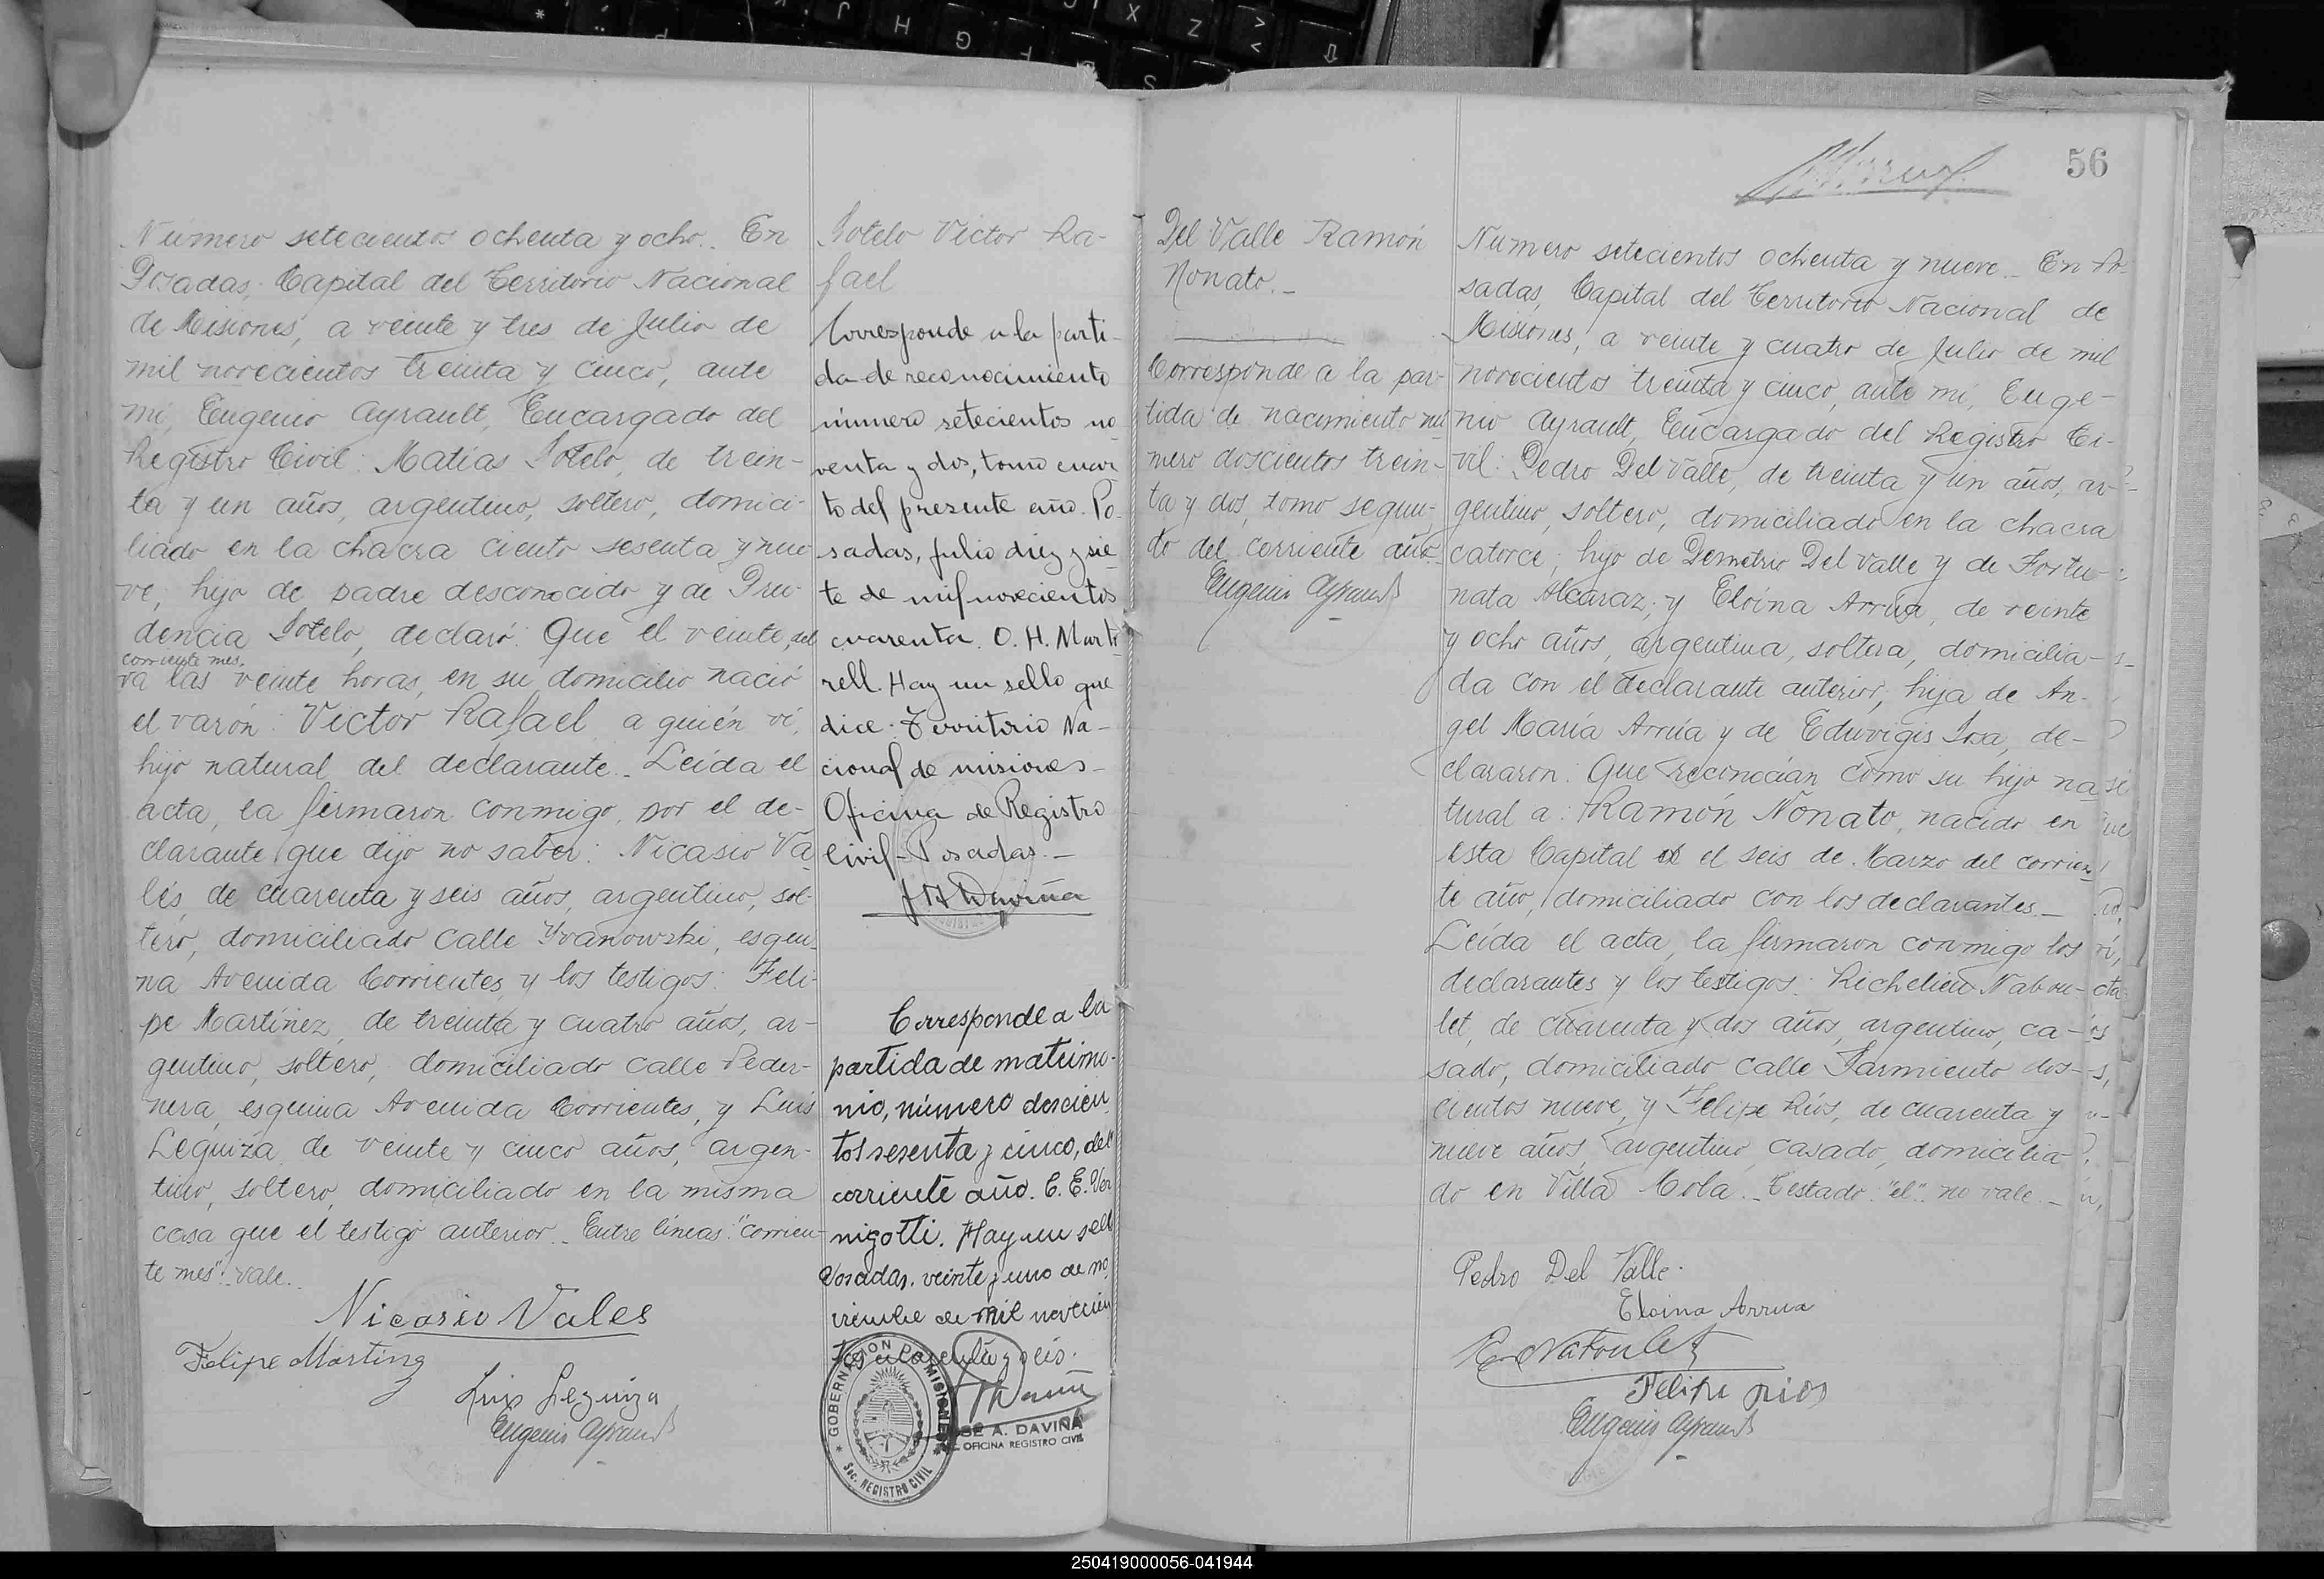 Número setecientos ochenta y ocho.. En
Posadas, Capital del Territorio Nacional
de Misiones, a veinte y tres de Julio de
mil novecientos treinta y cinco, ante
mí, Eugenio Ayrault, Encargado del
Registro Civil: Matías Sotelo, de trein-
ta y un años, argentino, soltero, domici-
liado en la chacra ciento sesenta y nue
ve; hijo de padre desconocido y de Pru-
dencia Sotelo, declaró: Que el veinte, del
corriente mes,
las veinte horas, en su domicilio nació
el varón: Victor Rafael a quién ví,
hijo natural del declarante._ Leída el
acta, la firmaron conmigo, por el de-
clarante que dijo no saber: Nicasio Va
lés, de cuarenta y seis años, argentino, sol-
tero, domiciliado calle Yvanowski, esqui-
na Avenida Corrientes, y los testigos: Feli-
pe Martínez, de treinta y cuatro años, ar-
gentino, soltero, domiciliado calle Peder-
nera, esquina Avenida Corrientes, y Luis
Leguiza, de veinte y cinco años, argen-
tino, soltero, domiciliado en la misma
casa que el testigo anterior._ Entre líneas: "corrien-
te mes": vale._
Nicasio Vales
Felipe Martinez
Luis Leguiza
Eugenio Ayrault
Sotelo Victor Ra-
fael
Corresponde a la parti-
da de reconocimiento
número setecientos no
venta y dos, tomo cuar
to del presente año. Po-
sadas, julio diez y sie
te de mil novecientos
cuarenta. O. H. Marto
rell. Hay un sello que
dice. Territorio Na-
cional de misiones-
Oficina de Registro
Civil-Posadas.-
J A Daviña
Corresponde a la
partida de matrimo-
nio, número doscien
tos sesenta y cinco, del
corriente año. C. E. Ver
nigotti. Hay un sello
Posadas, veinte y uno de no
viembre de mil novecien
tos cuarenta y seis.
GOBERNACION DE MISIONES
Sec. REGISTRO CIVIL
JOSÉ A. DAVIÑA
OFICINA REGISTRO CIVIL
56
Del Valle Ramón
Nonato._
Corresponde a la par-
tida de nacimiento nú
mero doscientos trein-
ta y dos, tomo segun-
do del corriente año.
Eugenio Ayrault
Número setecientos ochenta y nueve._ En Po-
sadas, Capital del Territorio Nacional de
Misiones, a veinte y cuatro de Julio de mil
novecientos treinta y cinco, ante mí, Euge-
nio Ayrault, Encargado del Registro Ci-
vil: Pedro Del Valle, de treinta y un años, ar-
gentino, soltero, domiciliado en la chacra
catorce; hijo de Demetrio Del Valle y de Fortu-
nata Alcaraz; y Eloina Arrúa, de veinte
y ocho años, argentina, soltera, domicilia-
da con el declarante anterior, hija de An-
gel María Arrúa y de Eduvigis Sosa, de-
clararon: Que reconocían como su hijo na
tural a: Ramón Nonato, nacido en
esta Capital el el seis de Marzo del corrien
te año, domiciliado con los declarantes._
Leída el acta, la firmaron conmigo los
declarantes y los testigos: Richelieu Nabou-
let, de cuarenta y dos años, argentino, ca-
sado, domiciliado calle Sarmiento dos-
cientos nueve, y Felipe Ríos, de cuarenta y
nueve años, argentino, casado, domicilia-
do en Villa Cola._ Testado: "el": no vale._
Pedro Del Valle.
Eloina Arrua
R Naboulet
Felipe rios
Eugenio Ayrault
250419000056-041944